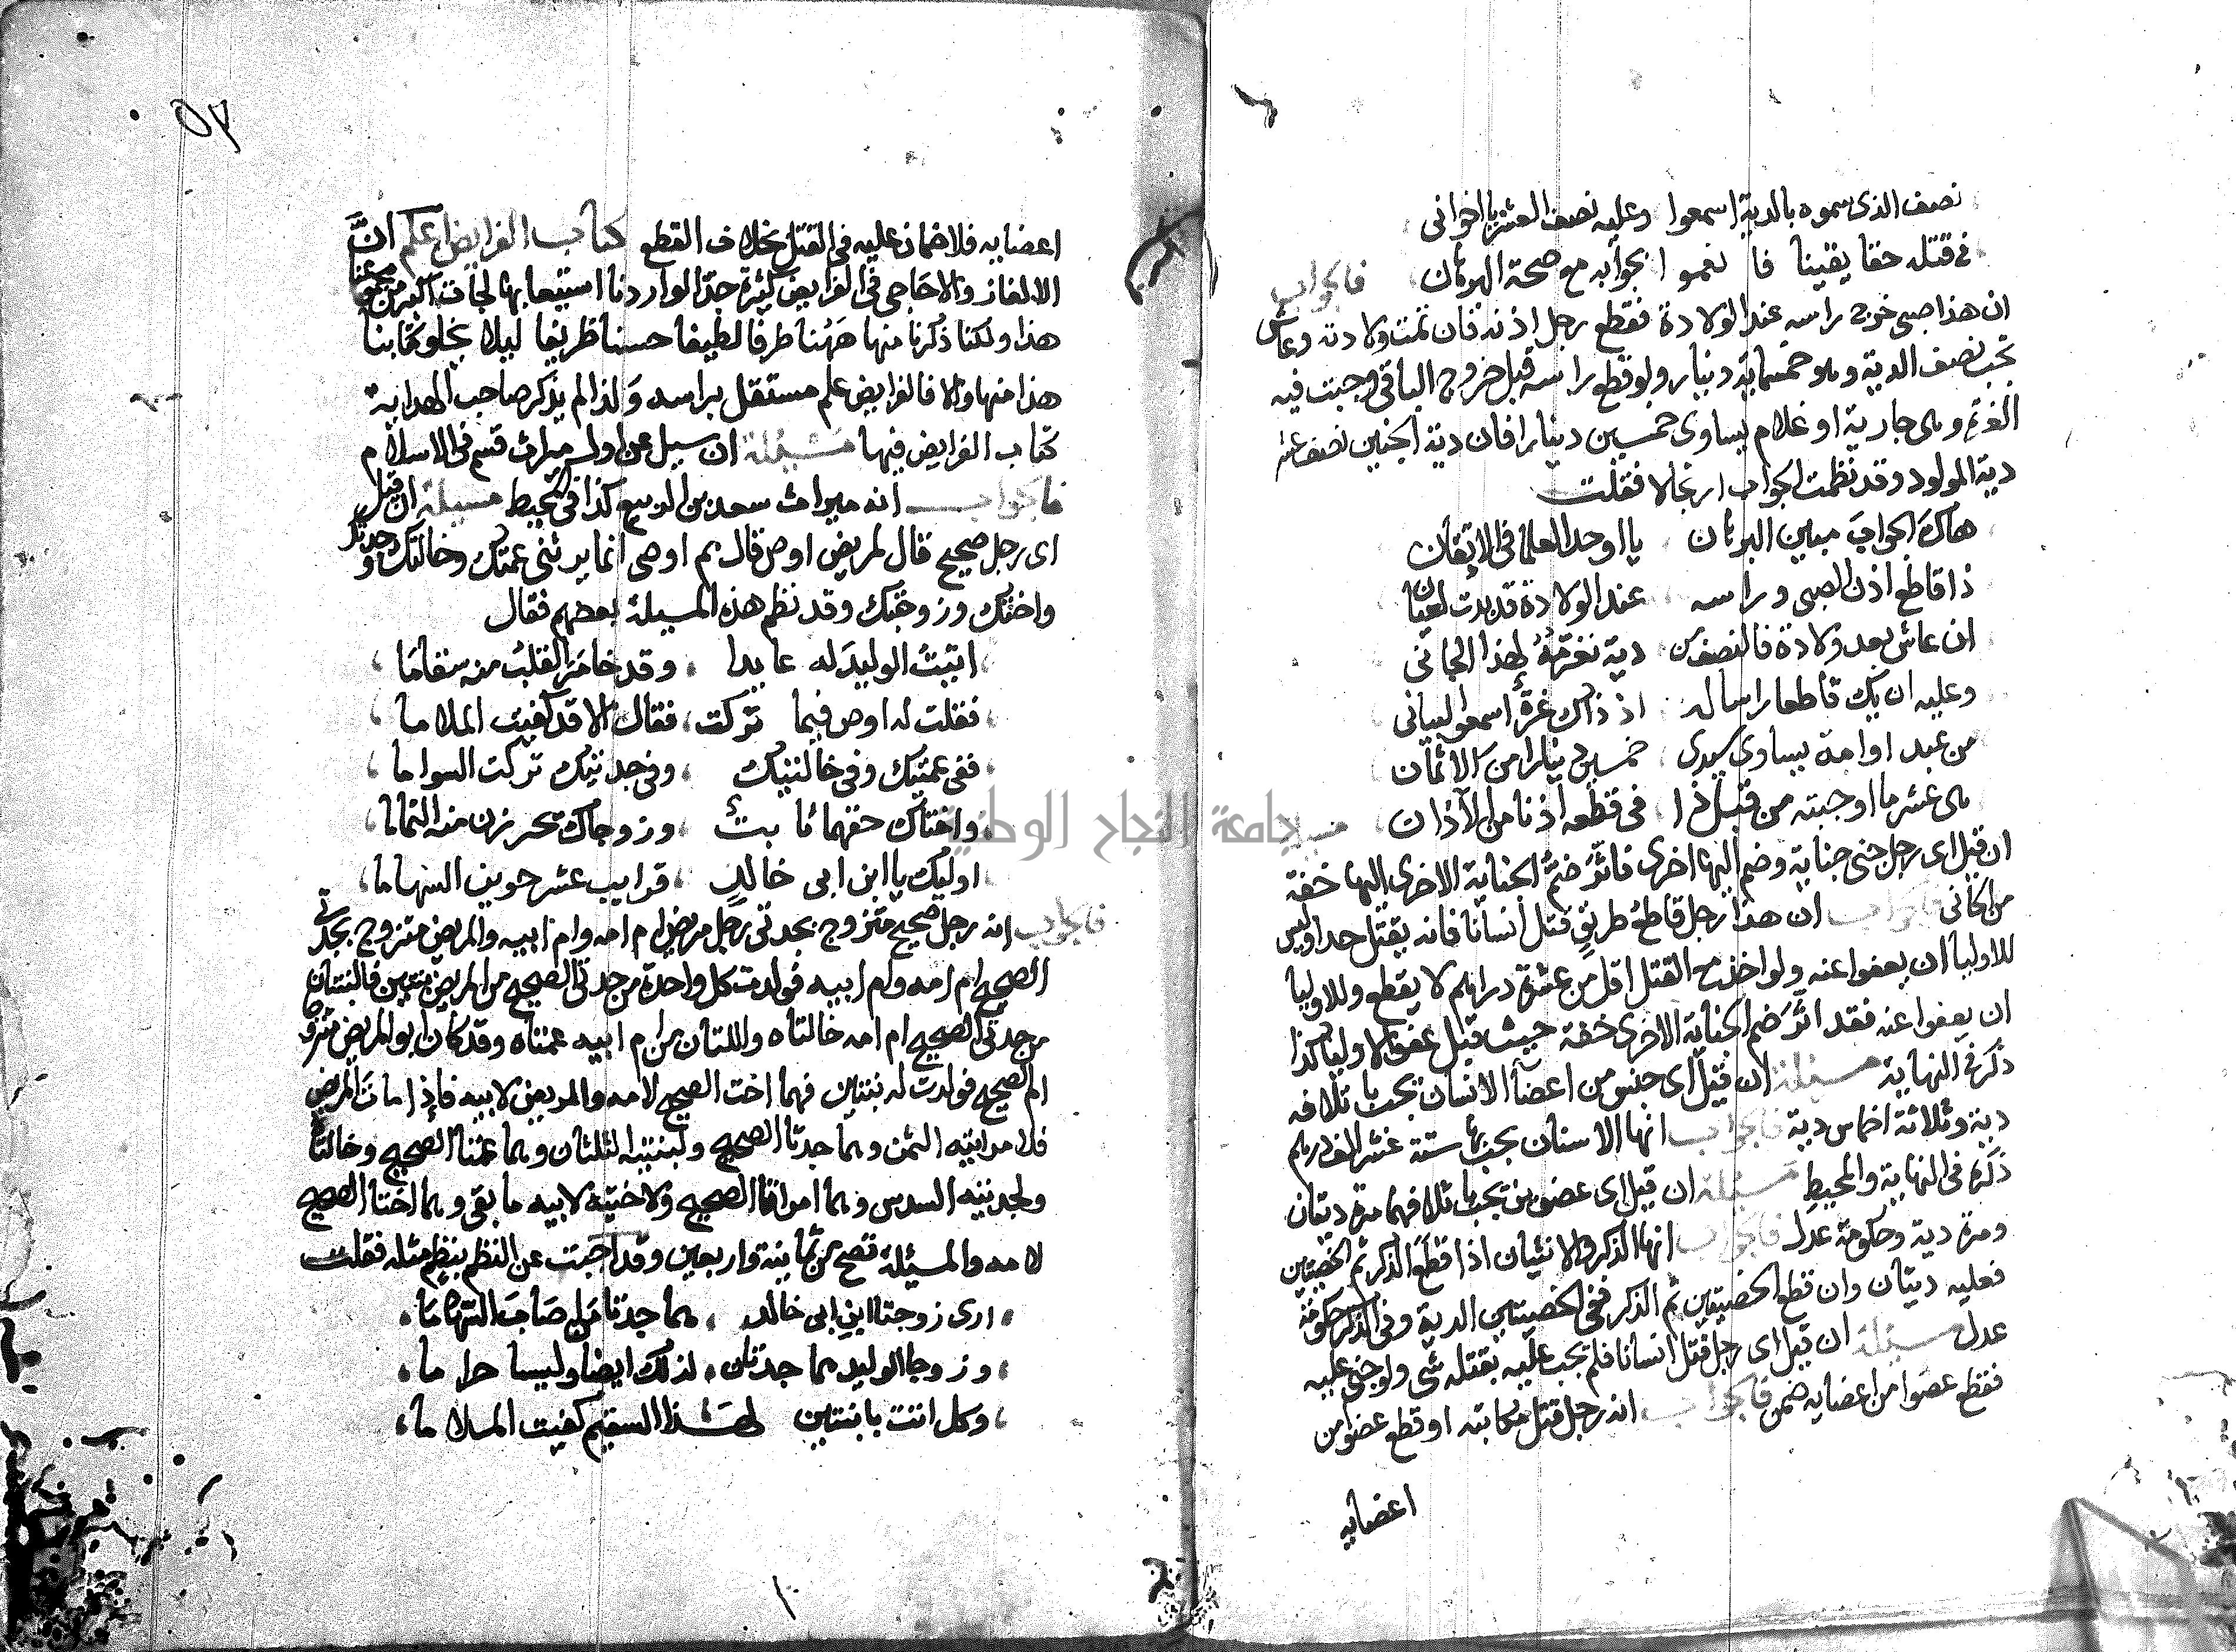 نصف الذى سموه بالدية اسمعوا وعليه نصف العشر يا اخوانى
فى قتله حقا يقينا فا نعموا بجوابه مع صحة البرهان فالجواب
ان هذا صبى خرج راسه عند الولادة فقطع رجل اذنه فان تمت ولادته وعاش
تجب نصف الدية وهو خمسماية دينار ولو قطع راسه قبل خروج الباقى وجبت فيه
الغرة وهى جارية او غلام يساوى خمسين دينارا فان دية الجنين نصف عشر
دية المولود وقد نظمت الجواب ارتجالا فقلت
هاك الجواب مبين البرهان يا اوحد العلما فى الاتقان
ذا قاطع اذن الصبى وراسه عند الولادة قد بدت لعيان
ان عاش بعد ولادة فالنصف من دية نغرمه لهذا الجانى
وعليه ان يك قاطعا راسا له اذ ذاك غرة اسمعوا لبيانى
من عبد او امة يساوى سيدى خمسين دينارا من الاثمان
هى عشر ما اوجبته من قبل ذا فى قطعه اذنا من الآذان
ان قيل اى رجل جنى جناية وضم اليها اخرى فاثر ضم الجناية الاخرى اليها خفة
من الجانى فالجواب ان هذا رجل قاطع طريق قتل انسانا فانه يقتل حدا وليس
للاوليا ان يعفوا عنه ولو اخذ مع القتل اقل من عشرة دراهم لا يقطع وللاوليا
ان يعفوا عنه فقد اثر ضم الجناية الاخرى خفة حيث قبل عفو الاوليا كذا
ذكر فى النهاية مسئلة ان قيل اى جنس من اعضا الانسان تجب باتلافه
دية وثلاثة اخماس دية فالجواب انها الاسنان يجب بها ستة عشر الف درهم
ذكره فى النهاية والمحيط مسئلة ان قيل اى عضوين تجب باتلافهما مرة ديتان
ومرة دية وحكومة عدل فالجواب انها الذكر والانثيان اذا قطع الذكر ثم الخصيتين
فعليه ديتان وان قطع الخصيتين ثم الذكر ففى الخصيتين الدية وفى الذكر حكومة
عدل مسئلة ان قيل اى رجل قتل انسانا فلم تجب عليه بقتله شى ولو جنى عليه
فقطع عضوا من اعضايه ضمن فالجواب انه رجل قتل مكاتبه او قطع عضوا من
اعضايه
٥٣
اعضايه فلا ضمان عليه فى القتل بخلاف القطع كتاب الفرايض اعلم ان
الالغاز والاحاجى فى الفرايض كثيرة جدا لو اردنا استيعابها لجات اكثر من مجموعنا
هذا ولكنا ذكرنا منها ههنا طرفا لطيفا حسنا ظريفا ليلا يخلو كتابنا
هذا منها والا فالفرايض علم مستقل براسه ولذا لم يذكر صاحب الهداية
كتاب الفرايض فيها مسئلة ان سيل عن اول ميراث قسم فى الاسلام
فالجواب انه ميراث سعد بن الربيع كذا فى المحيط مسيلة ان قيل
اى رجل صحيح قال لمريض اوص قال بم اوصى انما يرثنى عمتك وخالتك وجدتك
واختك وزوجتك وقد نظم هذه المسيلة بعضهم فقال
اتيت الوليد له عايدا وقد خامر القلب منه سقاما
فقلت له اوص فيما تركت فقال الا قد كفيت الملاما
ففى عمتيك وفى خالتيك وفى جدتيك تركت السواما
واختاك حقهما ثابت وزوجاك تحرزن منه التماما
اوليك يا ابن ابى خالد قرايب عشر حوين السهاما
فالجواب انه رجل صحيح متزوج بجدتى رجل مريض ام امه وام ابيه والمريض متزوج بجدتى
الصحيح ام امه وام ابيه فولدت كل واحدة من جدتى الصحيح من المريض بنتين فالبنتان
من جدتى الصحيح ام امه خالتاه واللتان من ام ابيه عمتاه وقد كان ابو المريض متزوج
ام الصحيح فولدت له بنتين فهما اخت الصحيح لامه والمريض لابيه فاذا مات المريض
فلامراتيه الثمن وهما جدتا الصحيح ولبنتيه الثلثان وهما عمتا الصحيح وخالتا
ولجدتيه السدس وهما امراتا الصحيح ولاختيه لابيه ما بقى وهما اختا الصحيح
لامه والمسيلة تصح من ثمانية واربعين وقد اجبت عن النظم بنظم مثله فقلت
ارى زوجتا ابن ابى خالد هما جدتا
وزوجا الوليد هما جدتان لذلك ايضا وليسا حراما
وكل اتت بابنتين لهذا السقيم كفيت الملاما
جامعة النجاح الوطنية